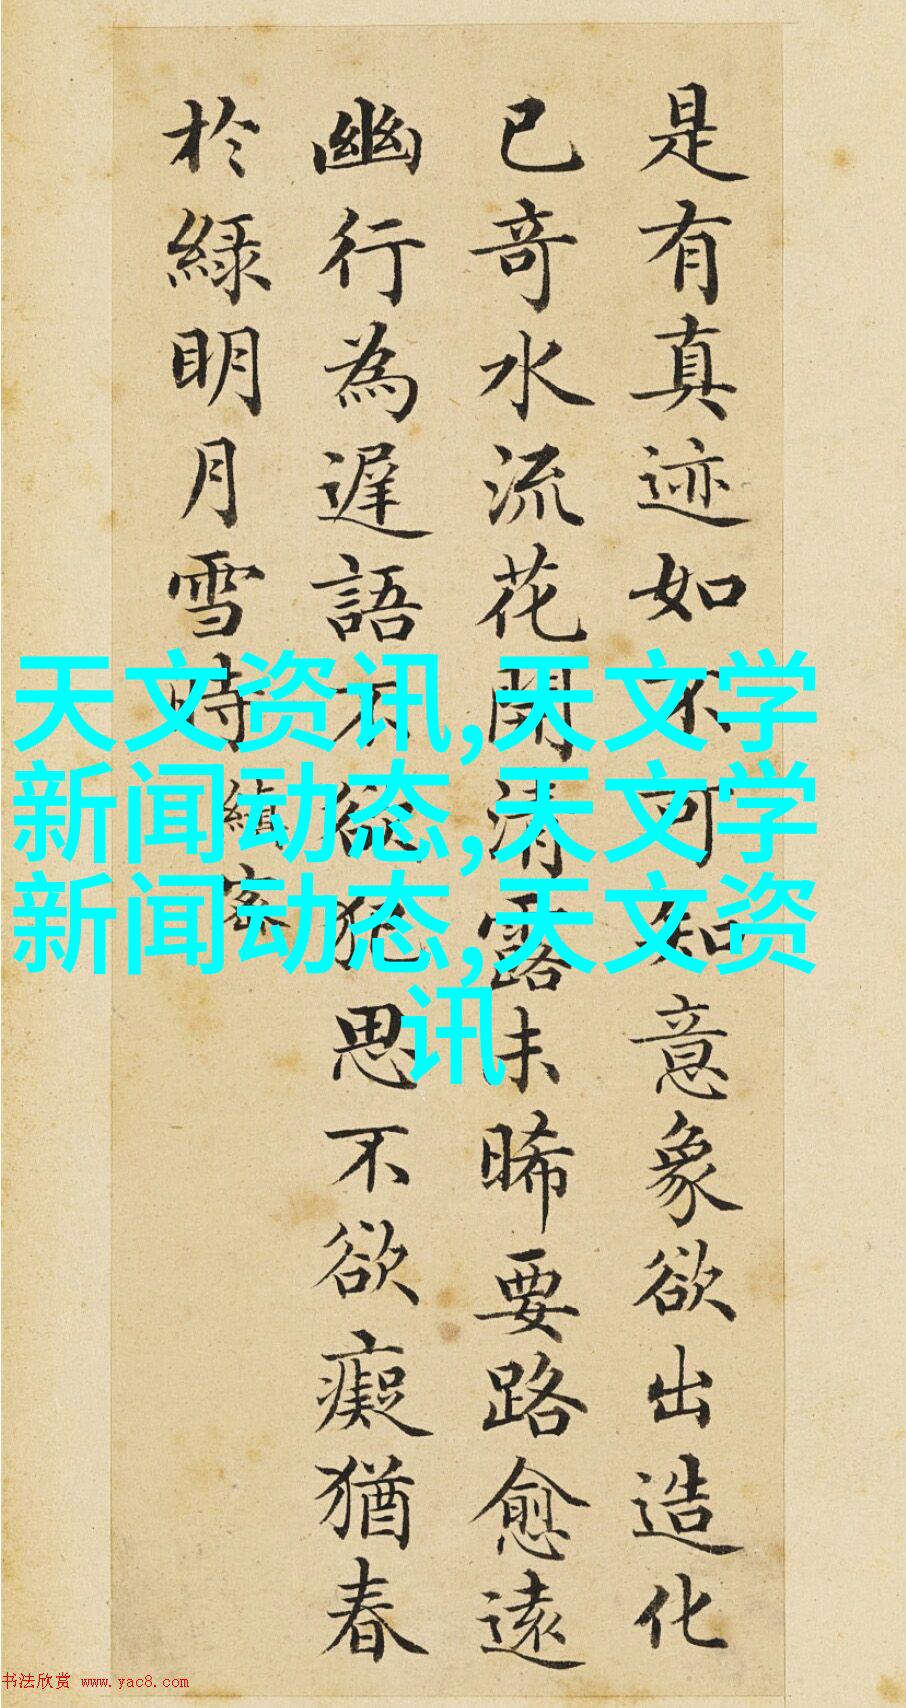 是有真迹如不可知意象欲出造化
已奇水流花開清露未晞要路愈遠
幽行為遲語不欲犯思不欲癡猶春
於綠明月雪時
縝密
天文资讯,天文学
新闻动态,天文学
新闻动态,天文资
讯
书法欣赏 www.yac8.com